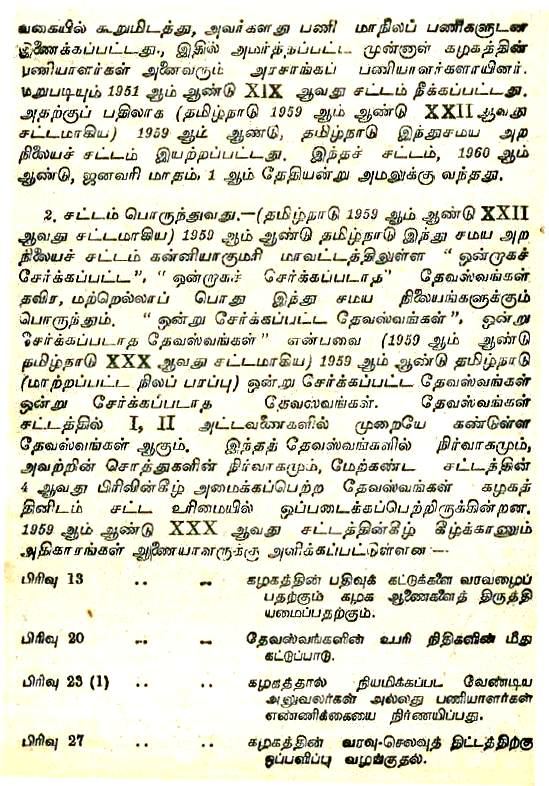 வகையில் கூறுமிடத்து, அவர்களது பணி மாநிலப் பணிகளுடன்
இணைக்கப்பட்டது., இதில் அமர்த்தப்பட்ட முன்னாள் கழகத்தின்
பணியாளர்கள் அனைவரும் அரசாங்கப் பணியாளர்களாயினர்.
மறுபடியும் 1951 ஆம் ஆண்டு XIX ஆவது சட்டம் நீக்கப்பட்டது.
அதற்குப் பதிலாக (தமிழ்நாடு 1959 ஆம் ஆண்டு XXII ஆவது
சட்டமாகிய) 1959 ஆம் ஆண்டு, தமிழ்நாடு இந்துசமய அற
நிலையச் சட்டம் இயற்றப்பட்டது. இந்தச் சட்டம், 1960 ஆம்
ஆண்டு, ஜனவரி மாதம், 1 ஆம் தேதியன்று அமலுக்கு வந்தது.
2. சட்டம் பொருந்துவது.—(தமிழ்நாடு 1959 ஆம் ஆண்டு XXII
ஆவது சட்டமாகிய) 1959 ஆம் ஆண்டு தமிழ்நாடு இந்து சமய அற
நிலைச் சட்டம் கன்னியாகுமரி மாவட்டத்திலுள்ள “ ஒன்றாகச்
சேர்க்கப்பட்ட”, “ ஒன்றாகச் சேர்க்கப்படாத” தேவஸ்வங்கள்
தவிர, மற்றெல்லாப் பொது இந்து சமய நிலையங்களுக்கும்
பொருந்தும். “ ஒன்று சேர்க்கப்பட்ட தேவஸ்வங்கள்”, ஒன்று
சேர்க்கப்படாத தேவஸ்வங்கள்” என்பவை (1959 ஆம் ஆண்டு
தமிழ்நாடு XXX ஆவது சட்டமாகிய) 1959 ஆம் ஆண்டு தமிழ்நாடு
(மாற்றப்பட்ட நிலப் பரப்பு) ஒன்று சேர்க்கப்பட்ட தேவஸ்வங்கள்
ஒன்று சேர்க்கப்படாத தேவஸ்வங்கள். தேவஸ்வங்கள்
சட்டத்தில் I, II அட்டவணைகளில் முறையே கண்டுள்ள
தேவஸ்வங்கள் ஆகும். இந்தத் தேவஸ்வங்களில் நிர்வாகமும்,
அவற்றின் சொத்துகளின் நிர்வாகமும், மேற்கண்ட சட்டத்தின்
4 ஆவது பிரிலின்கீழ் அமைக்கப்பெற்ற தேவஸ்வங்கள் கழகத்
தினிடம் சட்ட உரிமையில் ஒப்படைக்கப்பெற்றிருக்கின்றன.
1959 ஆம் ஆண்டு XXX ஆவது சட்டத்தின்கீழ் கீழ்க்காணும்
அதிகாரங்கள் ஆணையாளருக்கு அளிக்கப்பட்டுள்ளன :—
பிரிவு 13 .. .. கழகத்தின் பதிவுக் கட்டுக்களை வரவழைப்
பதற்கும் கழக ஆணைகளைத் திருத்தி
யமைப்பதற்கும்.
பிரிவு 20 .. .. தேவஸ்வங்களின் உபரி நிதிகளின் மீது
கட்டுப்பாடு.
பிரிவு 23 (1) .. .. கழகத்தால் நியமிக்கப்பட வேண்டிய
அலுவலர்கள் அல்லது பணியாளர்கள்
எண்ணிக்கையை நிர்ணயிப்பது.
பிரிவு 27 .. .. கழகத்தின் வரவு-செலவுத் திட்டத்திற்கு
ஒப்பளிப்பு வழங்குதல்.